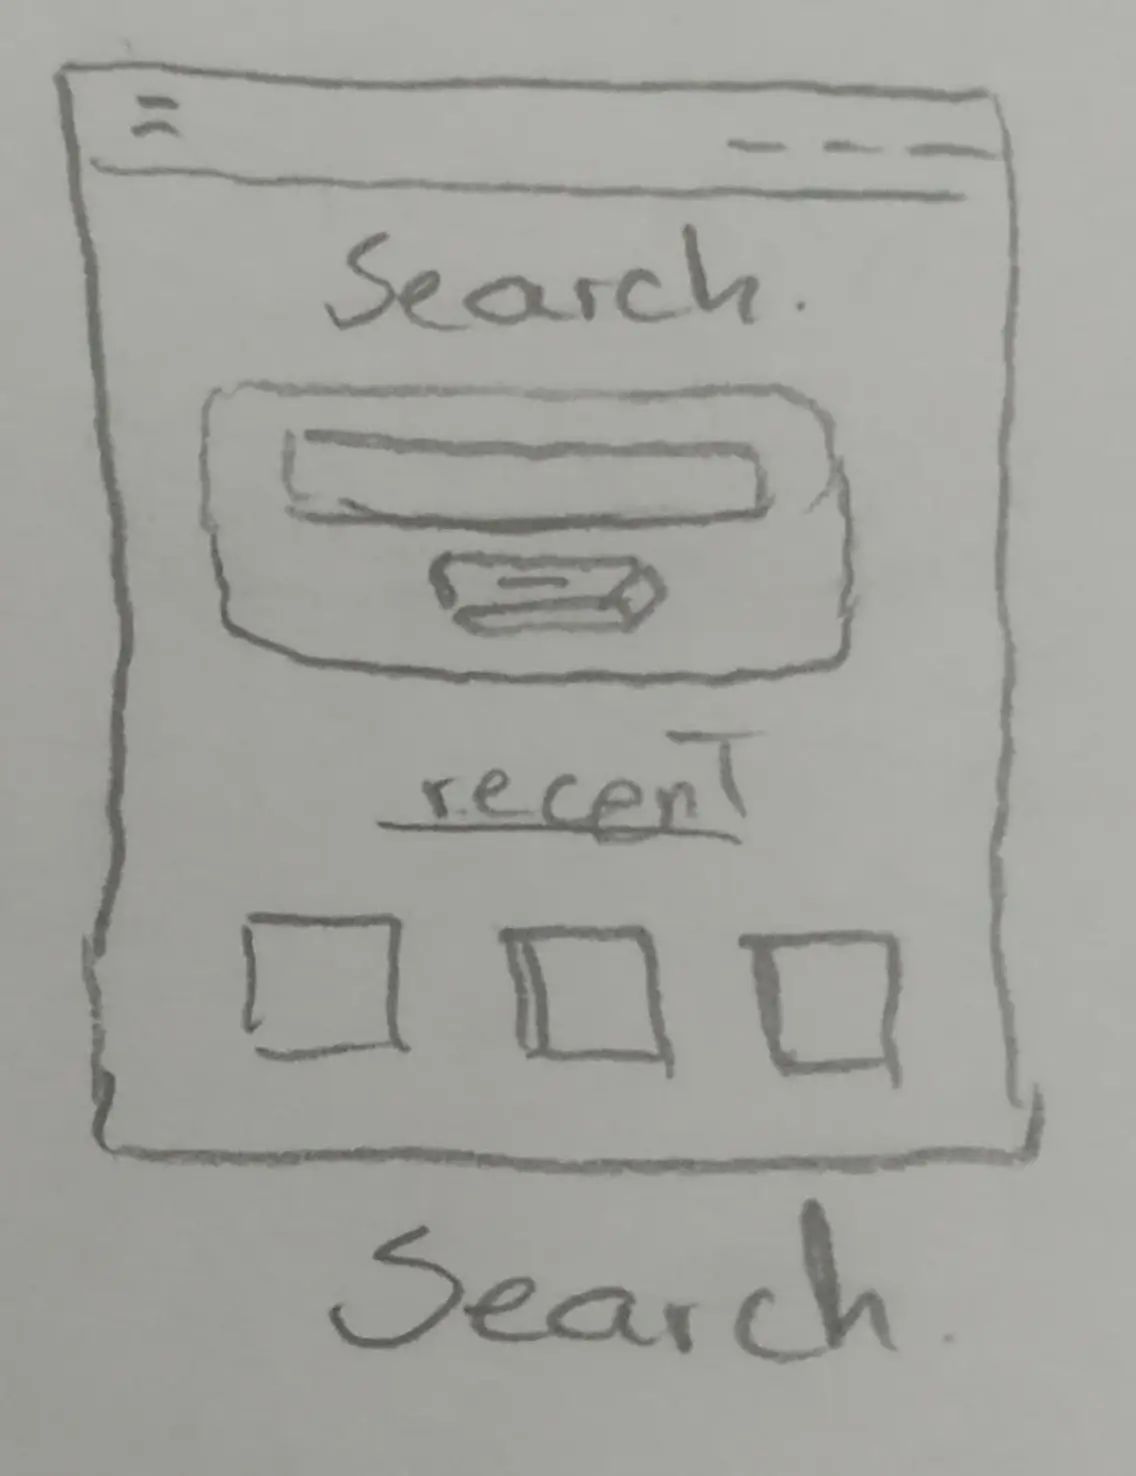 Search.
recent
Search.